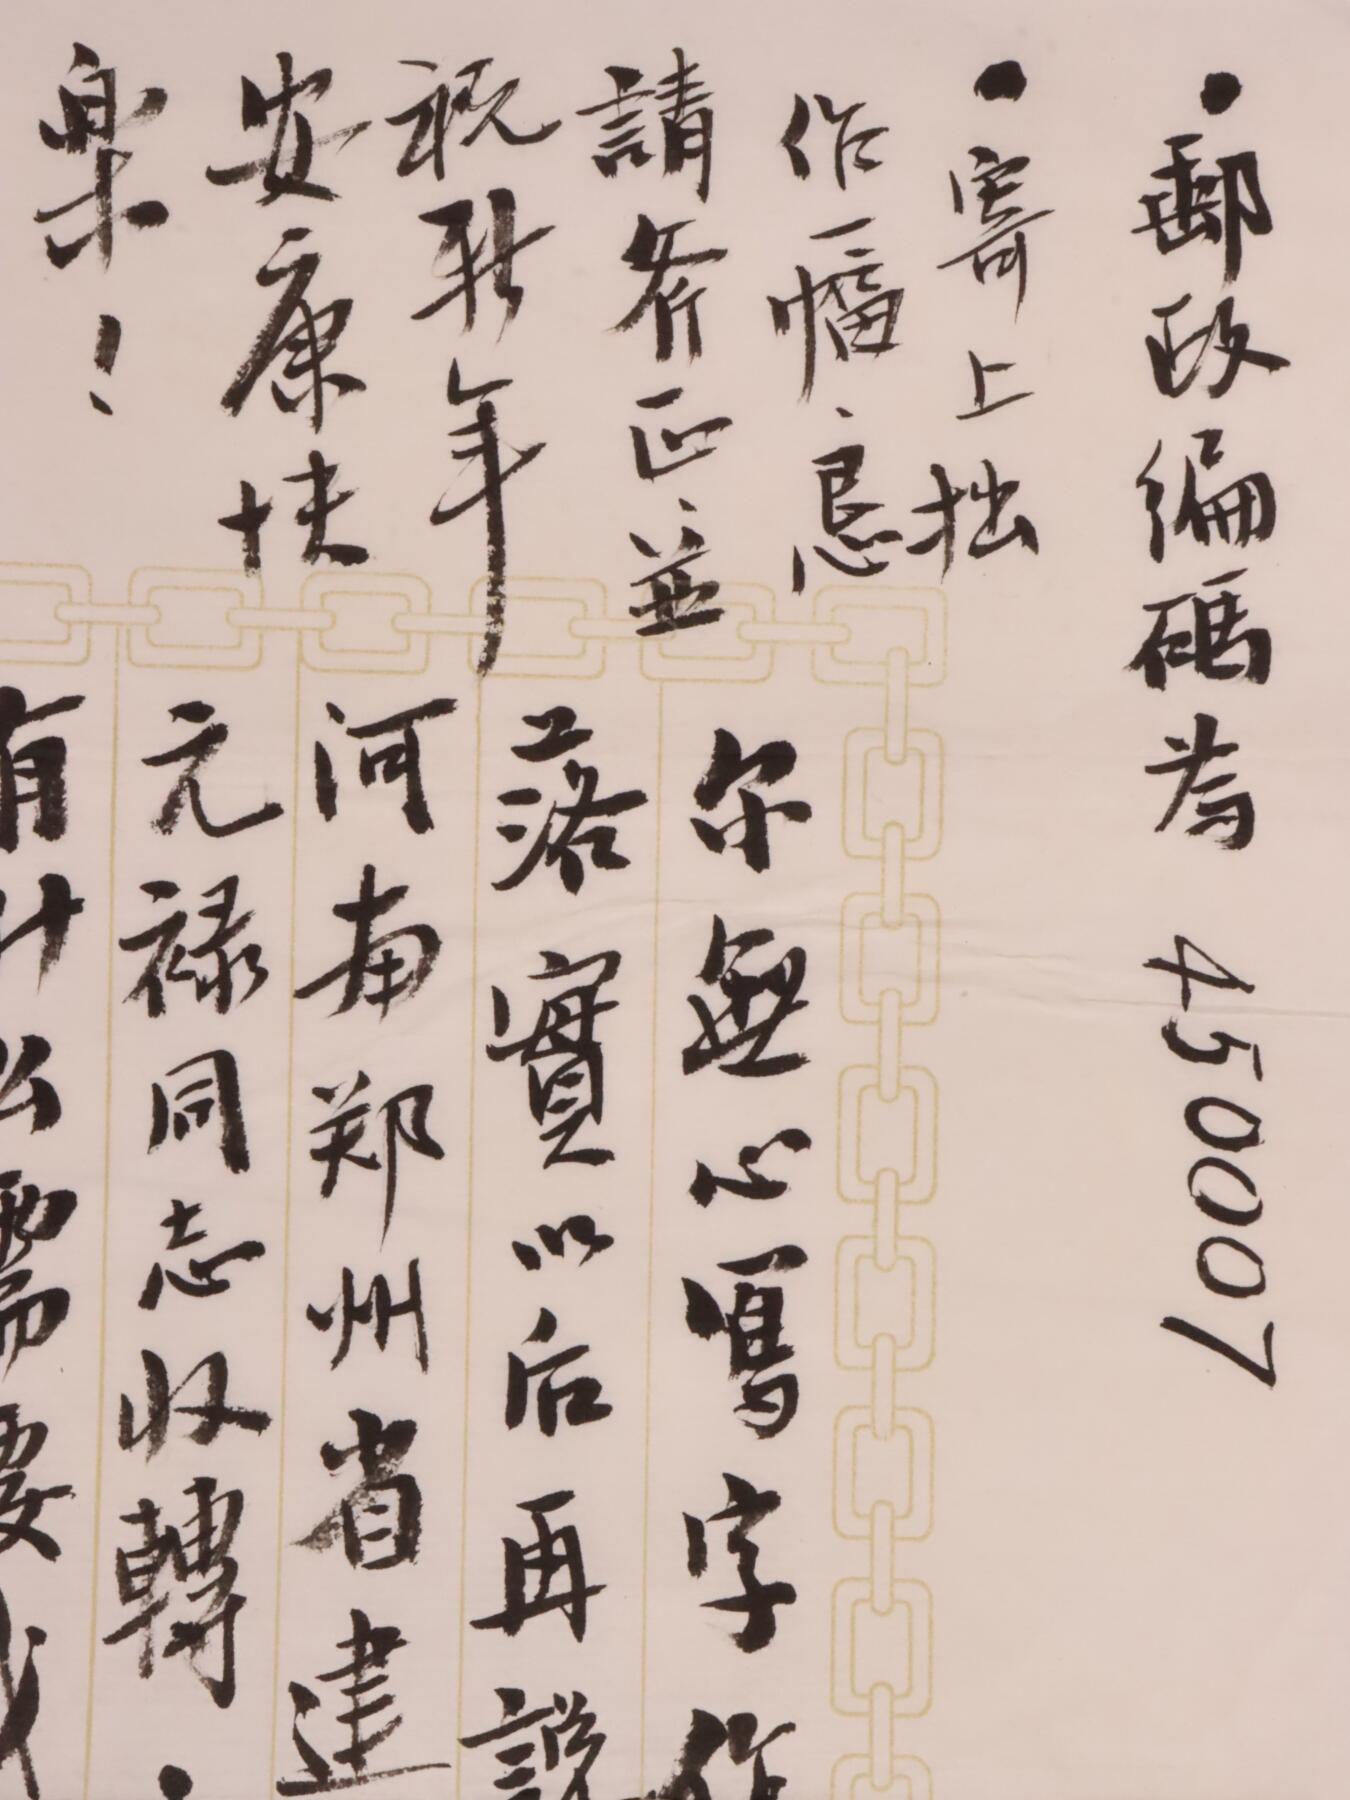 •郵政编碼为 450007
•寄上拙
作一幅、恳
請斧正、並
祝新年
安康快
樂！
尔無心寫字作
落實以后再説
河南郑州省建
元禄同志收轉.
有什么需要我